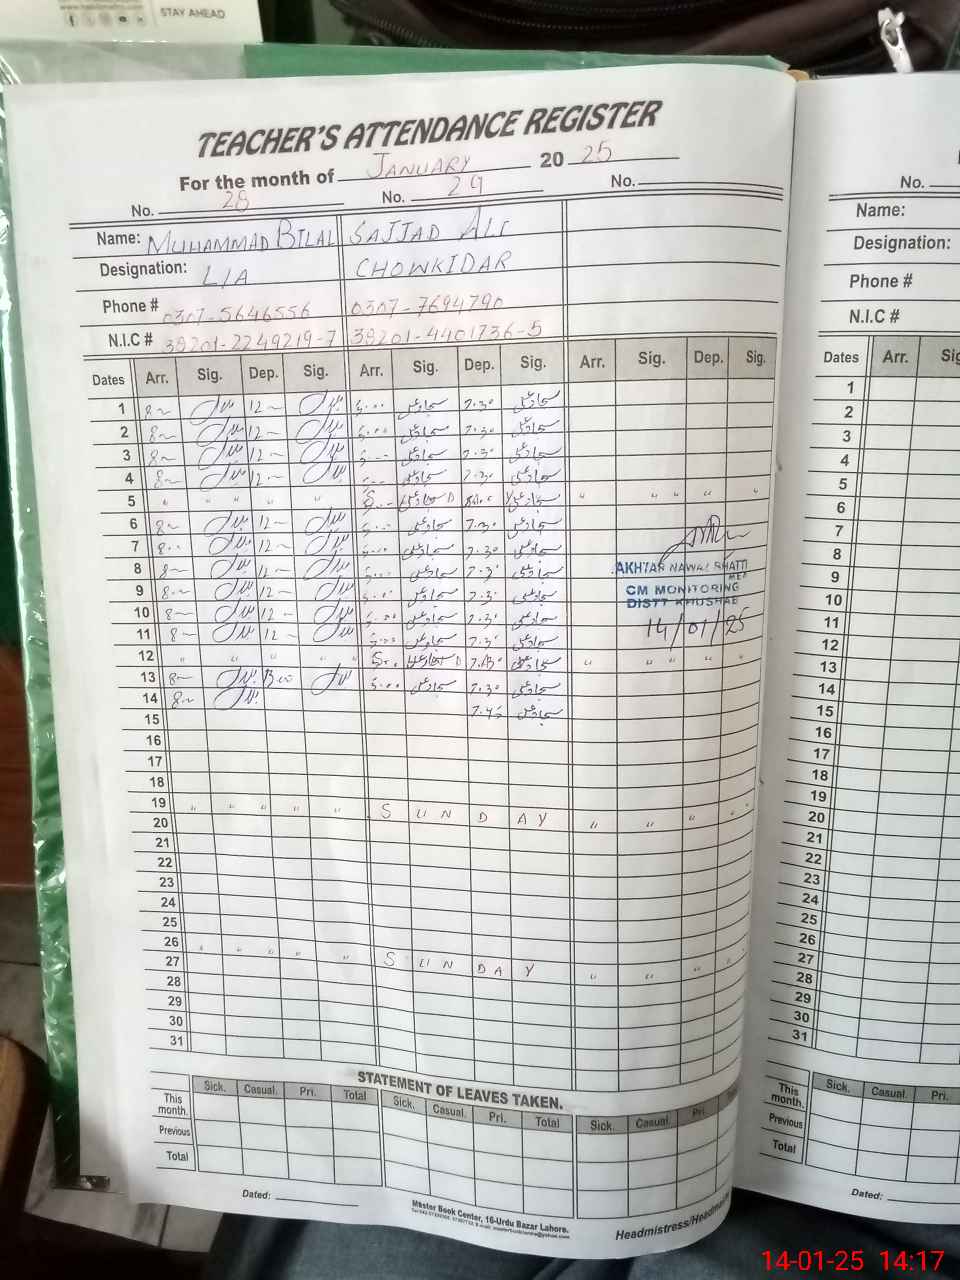 STAY AHEAD
TEACHER'S ATTENDANCE REGISTER
For the month of JANUARY 20 25
No. 28 No. 29 No.
Name: MUHAMMAD BILAL SAJJAD ALI
Designation: L/A CHOWKIDAR
Phone # 0307-5646556 0307-7694790
N.I.C # 38201-2249219-7 38201-4401736-5
Dates Arr. Sig. Dep. Sig. Arr. Sig. Dep. Sig. Arr. Sig. Dep. Sig.
1 8 12 5.00 سجاد علی 7.30 سجاد علی
2 8 12 5.00 سجاد علی 7.30 سجاد علی
3 8 12 5.00 سجاد علی 7.30 سجاد علی
4 8 12 5.00 سجاد علی 7.30 سجاد علی
5 " " " " " " " "
6 8 12 5.00 سجاد علی 7.30 سجاد علی
7 8.00 12 5.00 سجاد علی 7.30 سجاد علی
8 8 12 5.00 سجاد علی 7.30 سجاد علی
9 8 12 5.00 سجاد علی 7.30 سجاد علی
10 8 12 5.00 سجاد علی 7.30 سجاد علی
11 8 12 5.00 سجاد علی 7.30 سجاد علی
12 " " " " " " " "
13 8 5.00 سجاد علی 7.30 سجاد علی
14 8 7.45 سجاد علی
15
16
17
18
19 " " " " " S U N D A Y " " " "
20
21
22
23
24
25
26 " " " " " S U N D A Y " " " "
27
28
29
30
31
AKHTAR NAWAZ BHATTI
MEA
CM MONITORING
DISTT KHUSHAB
14/01/25
STATEMENT OF LEAVES TAKEN.
Sick. Casual. Pri. Total Sick. Casual. Pri. Total Sick. Casual. Pri.
This month.
Previous
Total
Dated:
Master Book Center, 16-Urdu Bazar Lahore.
Headmistress/Headmaster
No.
Name:
Designation:
Phone #
N.I.C #
Dates Arr. Sig
1
2
3
4
5
6
7
8
9
10
11
12
13
14
15
16
17
18
19
20
21
22
23
24
25
26
27
28
29
30
31
Sick. Casual. Pri.
This month.
Previous
Total
Dated:
14-01-25 14:17